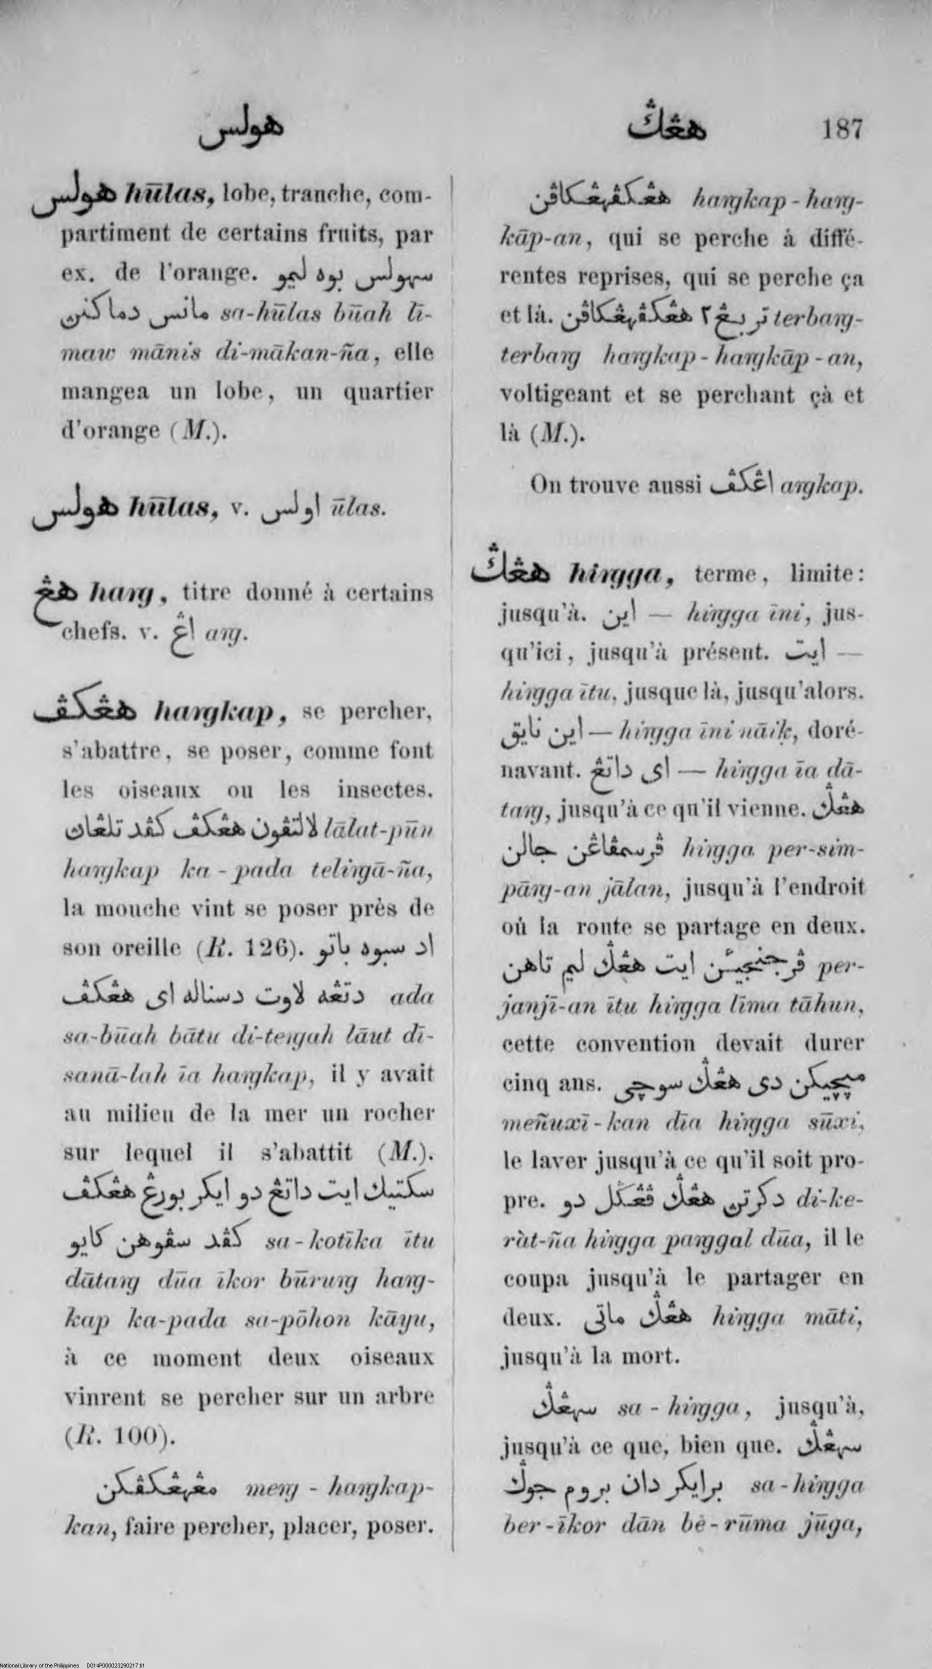 هولس
هڠݢ 187
هولس hūlas, lobe, tranche, com-
partiment de certains fruits, par
ex. de l'orange. سهولس بوه ليمو
مانس دماكنن sa-hūlas būah lī-
maw mānis di-mākan-ña, elle
mangea un lobe, un quartier
d'orange (M.).
هولس hūlas, v. اولس ūlas.
هڠ haŋg, titre donné à certains
chefs. v. اڠ aŋg.
هڠكڤ haŋgkap, se percher,
s'abattre, se poser, comme font
les oiseaux ou les insectes.
لالتڤون هڠكڤ كڤد تلڠان lālat-pūn
haŋgkap ka-pada teliŋgā-ña,
la mouche vint se poser près de
son oreille (R. 126). اد سبوه باتو
دتڠه لاوت دسناله اى هڠكڤ ada
sa-būah bātu di-teŋgah lāut dī-
sanā-lah īa haŋgkap, il y avait
au milieu de la mer un rocher
sur lequel il s'abattit (M.).
سكتيك ايت داتڠ دو ايكر بورڠ هڠكڤ
كڤد سڤوهن كايو sa-kotīka ītu
dātaŋg dūa īkor būruŋg haŋg-
kap ka-pada sa-pōhon kāyu,
à ce moment deux oiseaux
vinrent se percher sur un arbre
(R. 100).
مڠهڠكڤكن meŋg-haŋgkap-
kan, faire percher, placer, poser.
هڠكڤهڠكاڤن haŋgkap-haŋg-
kāp-an, qui se perche à diffé-
rentes reprises, qui se perche ça
et là. تربڠ٢ هڠكڤهڠكاڤن terbaŋg-
terbaŋg haŋgkap-haŋgkāp-an,
voltigeant et se perchant çà et
là (M.).
On trouve aussi اڠكڤ aŋgkap.
هڠݢ hiŋgga, terme, limite:
jusqu'à. اين — hiŋgga īni, jus-
qu'ici, jusqu'à présent. ايت —
hiŋgga ītu, jusque là, jusqu'alors.
اين نايق — hiŋgga īni nāiḳ, doré-
navant. اى داتڠ — hiŋgga īa dā-
taŋg, jusqu'à ce qu'il vienne. هڠݢ
ڤرسمڤاڠن جالن hiŋgga per-sim-
pāŋg-an jālan, jusqu'à l'endroit
où la route se partage en deux.
ڤرجنجيئن ايت هڠݢ ليم تاهن per-
janjī-an ītu hiŋgga līma tāhun,
cette convention devait durer
cinq ans. مڽچيكن دى هڠݢ سوچى
meñuxī-kan dīa hiŋgga sūxi,
le laver jusqu'à ce qu'il soit pro-
pre. دكرتن هڠݢ ڤڠݢل دو di-ke-
ràt-ña hiŋgga paŋggal dūa, il le
coupa jusqu'à le partager en
deux. هڠݢ ماتى hiŋgga māti,
jusqu'à la mort.
سهڠݢ sa-hiŋgga, jusqu'à,
jusqu'à ce que, bien que. سهڠݢ
برايكر دان بروم جوݢ sa-hiŋgga
ber-īkor dān bĕ-rūma jūga,
National Library of the Philippines